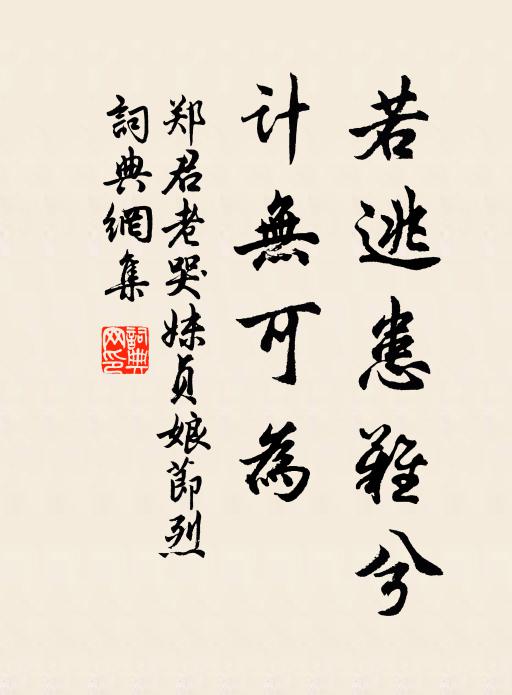 若逃患难兮
计無可為
郑君老哭妹贞娘節烈
詞典網集
詞典網印